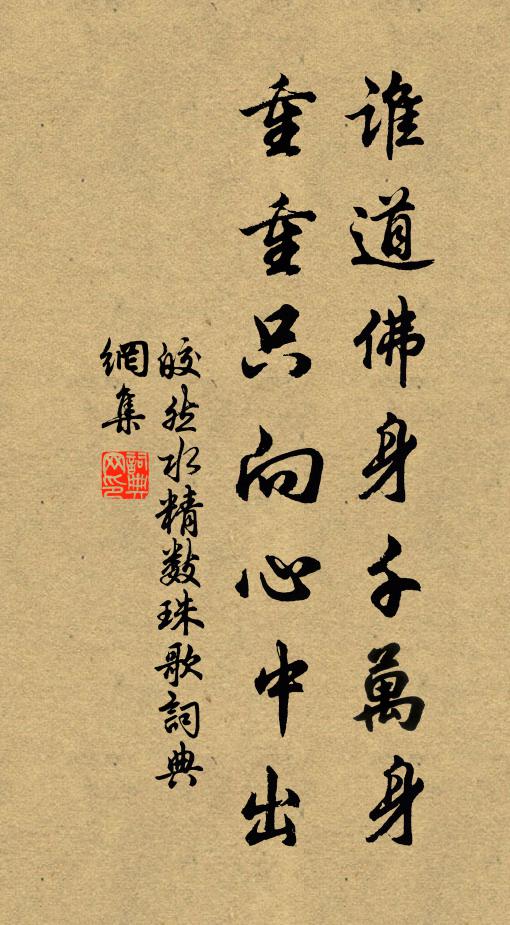 誰道佛身千萬身
重重只向心中出
皎然水精數珠歌詞典
網集
詞典
网印